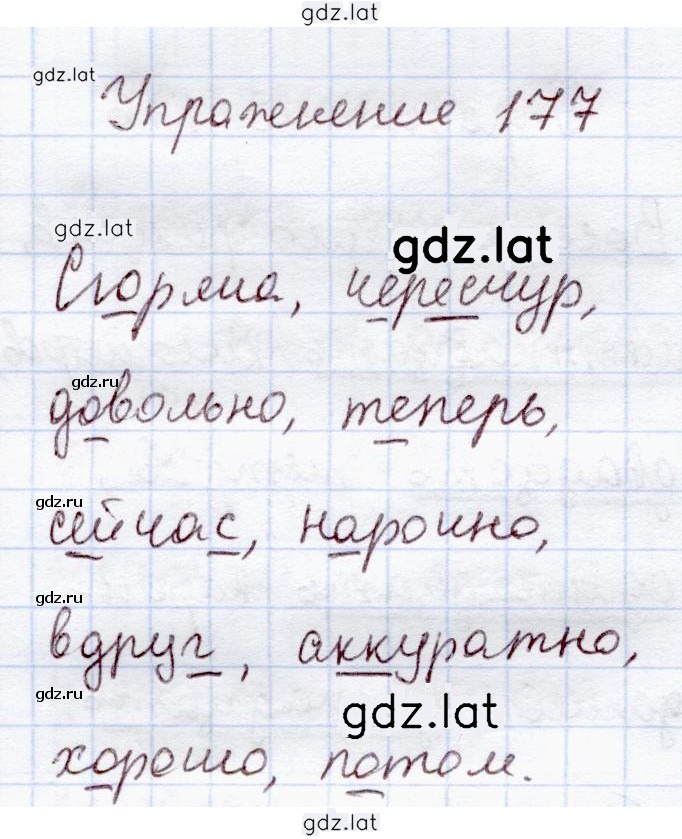 gdz.lat
gdz.lat
Упражнение 177
gdz.lat
gdz.lat
Сгоряча, чересчур,
gdz.ru
довольно, теперь,
gdz.ru
сейчас, нарочно,
gdz.ru
вдруг, аккуратно,
gdz.ru
gdz.lat
хорошо, потом.
gdz.lat